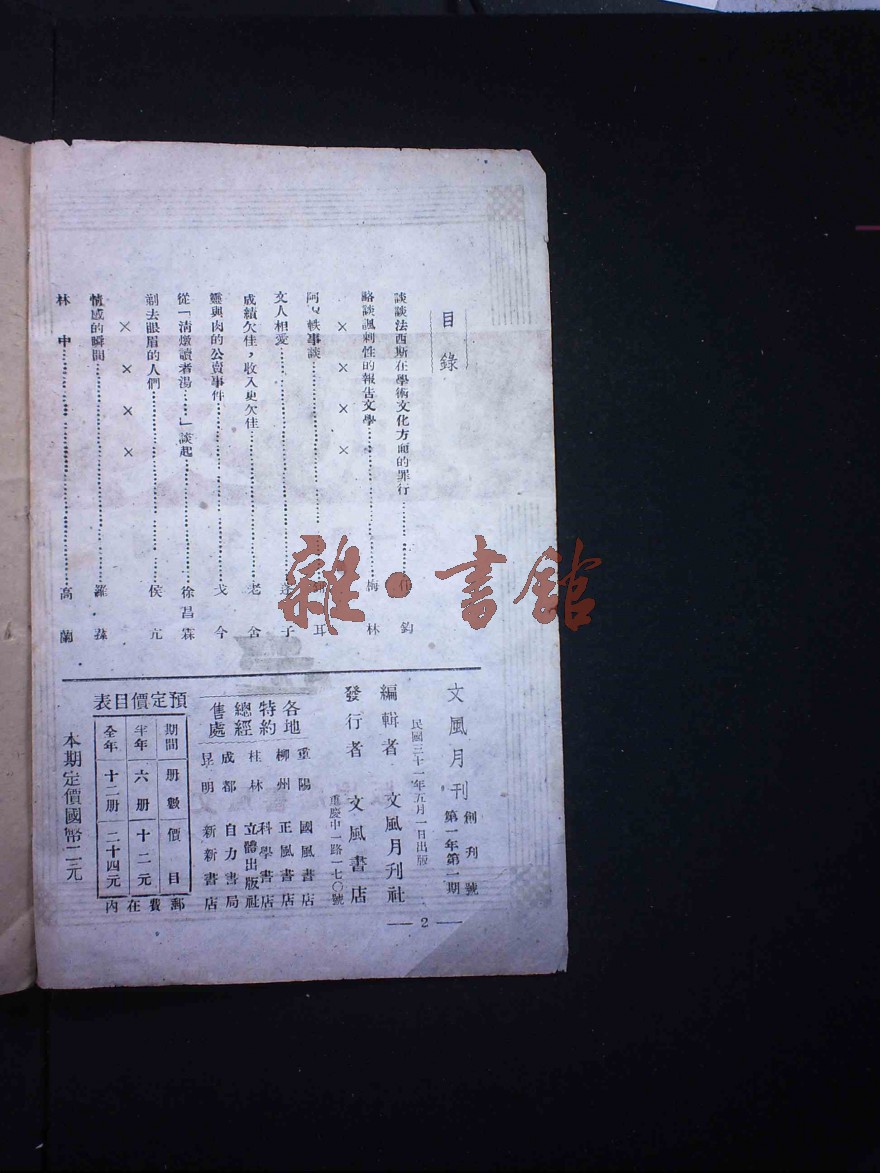 目錄
談談法西斯在學術文化方面的罪行……任鈞
略談諷刺性的報告文學……梅林
××××
阿Q軼事談……耳
文人相愛……子
成績欠佳，收入更欠佳……老舍
靈與肉的公賣事件……戈今
從「清燉讀者湯……」談起……徐昌霖
剃去眼眉的人們……侯亢
××××
情感的瞬間……羅蓀
林中……高蘭
文風月刊 創刊號 第一年第一期
民國三十一年五月一日出版
編輯者 文風月刊社
發行者 文風書店
重慶中一路一七〇號
各地特約總經售處
重陽 國風書店
柳州 正風書店
桂林 科學書店 立體出版社
成都 自力書局
昆明 新新書店
預定價目表
期間 册數 價目
半年 六册 十二元
全年 十二册 二十四元
郵費在內
本期定價國幣二元
— 2 —
雜·書館